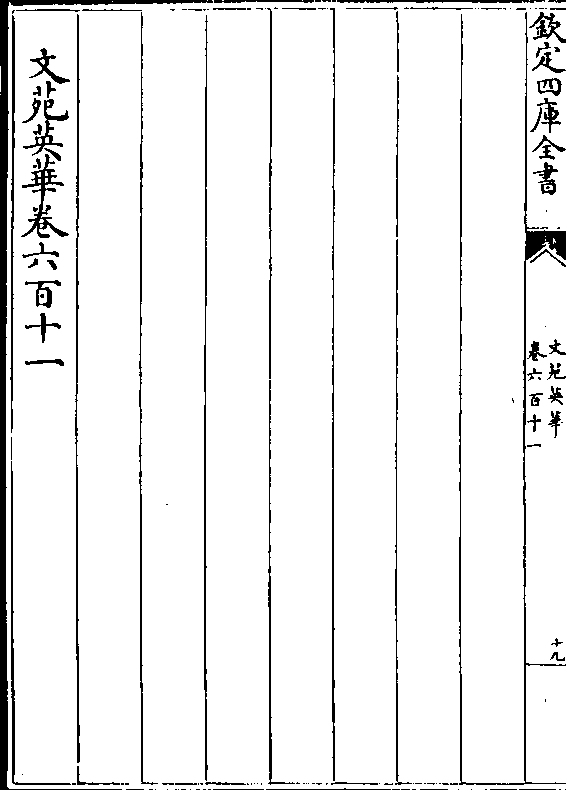 欽定四庫全書
文苑英華
卷六百十一
十九
文苑英華卷六百十一